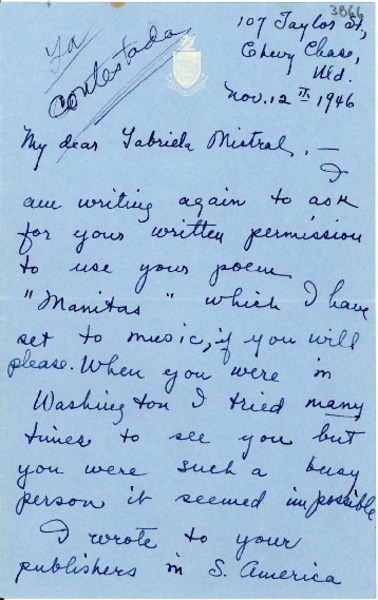 3866
Ya
contestada
107 Taylor St,
Chevy Chase,
Md.
Nov. 12th 1946
My dear Gabriela Mistral, —
I
am writing again to ask
for your written permission
to use your poem
"Manitas" which I have
set to music, if you will
please. When you were in
Washington I tried many
times to see you but
you were such a busy
person it seemed impossible
I wrote to your
publishers in S. America